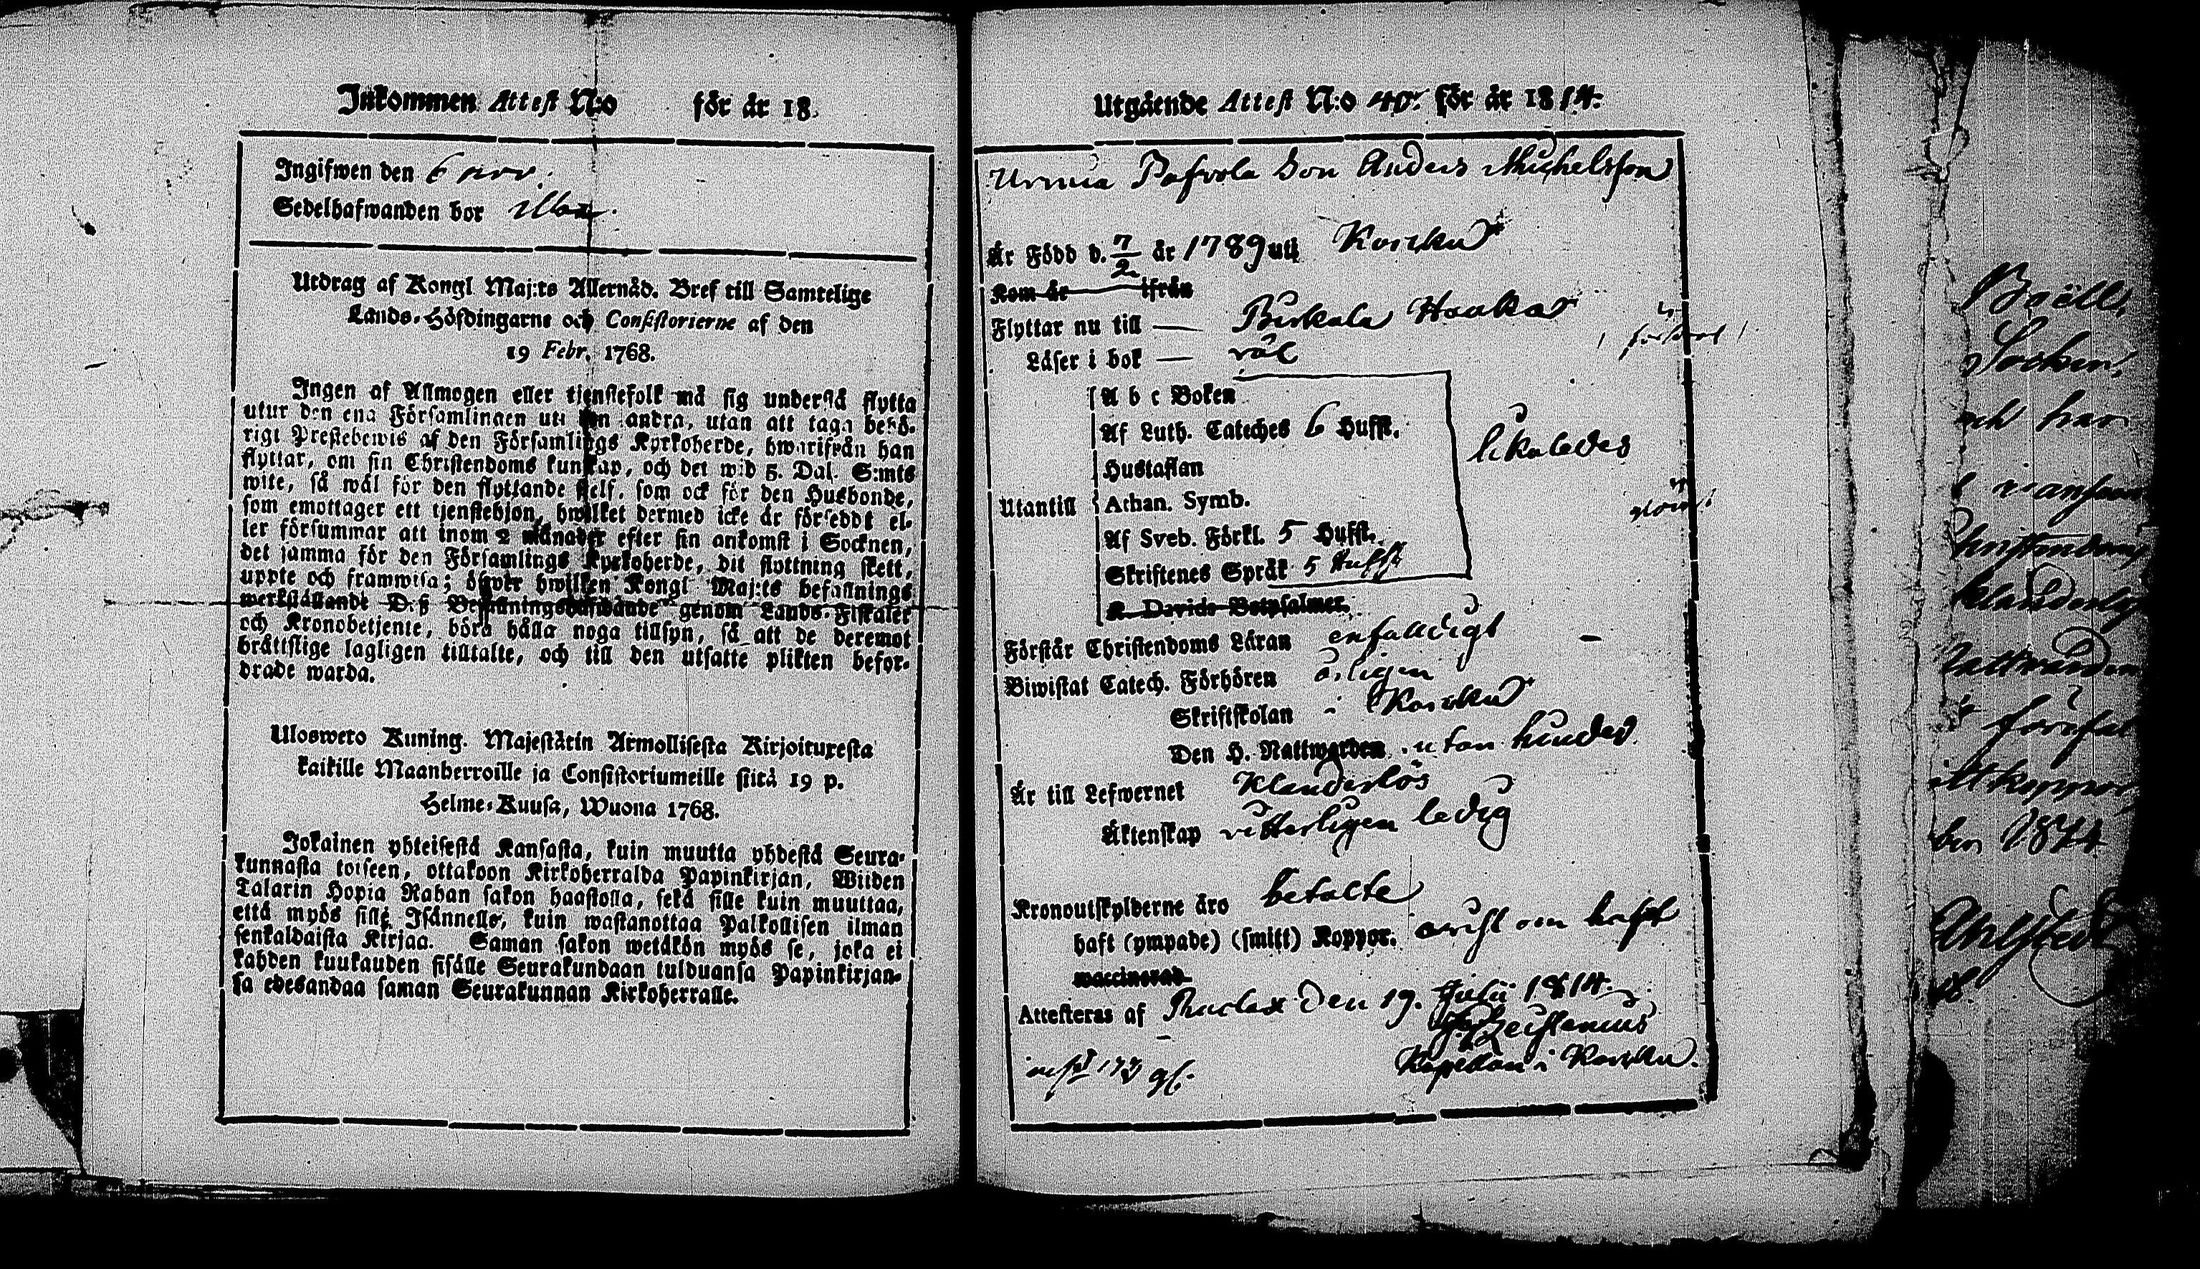 Inkommen Attest N:o för år 18
Ingifwen den 6 nov.
Sedelhafwanden bor
Utdrag af Kongl Maj:ts Allernåd. Bref till Samtelige
Lands-Höfdingarne och Consistorierne af den
19 Febr. 1768.
Ingen af Allmogen eller tjenstefolk må sig understå flytta
utur den ena Församlingen uti den andra, utan att taga behö-
rigt Prestebewis af den Församlings Kyrkoherde, hwarifrån han
flyttar, om sin Christendoms kunskap, och det wid 5. Dal. S:mts
wite, så wäl för den flyttande sielf, som ock för den Husbonde,
som emottager ett tjenstehjon, hwilket dermed icke är förseddt el-
ler försummar att inom 2 månader efter sin ankomst i Socknen,
det samma för den Församlings Kyrkoherde, dit flyttning skett,
uppte och framwisa; öfwer hwilken Kongl Maj:ts befallnings
werkställande Dess Befallningshafwande genom Lands-Fiskaler
och Kronobetjente, böra hålla noga tillsyn, så att de deremot
bråttslige lagligen tilltalte, och till den utsatte plikten befor-
drade warda.
Ulosweto Kuning. Majestätin Armollisesta Kirjoituxesta
kaikille Maanherroille ja Consistoriumeille siitä 19 p.
Helme-Kuusa, Wuona 1768.
Jokainen yhteisestä Kansasta, kuin muutta yhdestä Seura-
kunnasta toiseen, ottakoon Kirkoherralda Papinkirjan, Wiiden
Talarin Hopia Rahan sakon haastolla, sekä sille kuin muuttaa,
että myös sille Isännelle, kuin wastanottaa Palkollisen ilman
senkaldaista Kirjaa. Saman sakon wetäkön myös se, joka ei
kahden kuukauden sisälle Seurakundaan tulduansa Papinkirjan-
sa edesandaa saman Seurakunnan Kirkoherralle.
Utgående Attest N:o 40. för år 1814.
Urmia Pafvola Son Anders Michelsson
Är Född d. 7/2 år 1789 uti Karcku
Kom år ifrån
Flyttar nu till — Birkala Haaka
Läser i bok — väl
A b c Boken
Af Luth. Cateches 6 Hufst.
Hustaflan
likaledes
Utantill Athan. Symb.
Af Sveb. Förkl. 5 Hufst.
Skriftenes Språk 5 Hufst
K Davids Botpsalmer.
Förstår Christendoms Läran enfalldigt
Biwistat Catech. Förhören årligen
Skriftskolan i Karcku
Den H. Nattwarden utan hinder
Är till Lefwernet klanderlös
Äktenskap vitterligen ledig
Kronoutskylderne äro betalte
haft (ympade) (smitt) Koppor. ovist om haft
waccinerad
Attesteras af den 19. Julii 1814.
Kapellan i Karcku.
Socken
och har
klanderlig
Nattvarden
den 1814
Ahlstedt